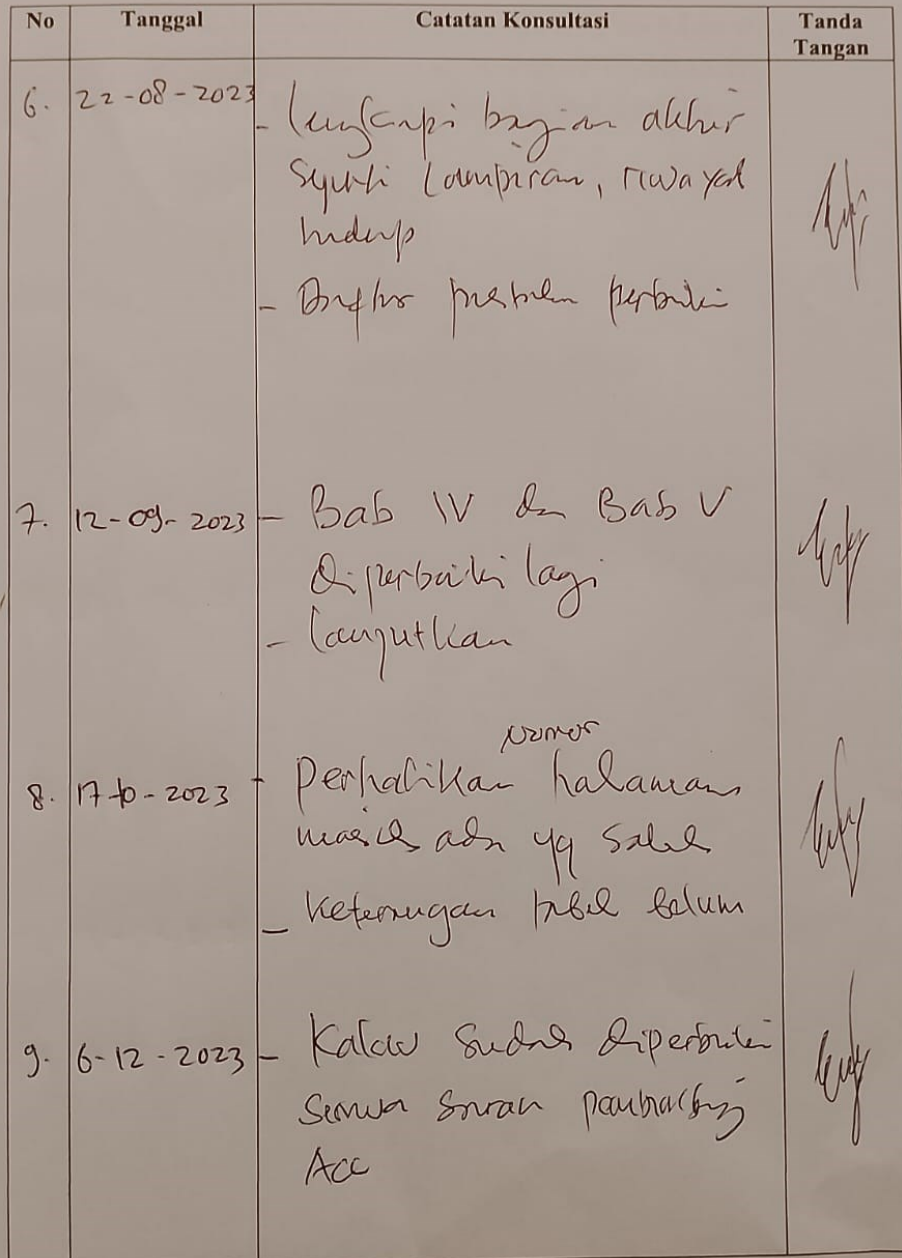 No Tanggal Catatan Konsultasi Tanda
Tangan
6. 22-08-2023
- lengkapi bagian akhir
seperti lampiran, riwayat
hidup
- Daftar pustaka perbaiki
7. 12-09-2023 - Bab IV dan Bab V
diperbaiki lagi
- lanjutkan
nomor
8. 17-10-2023 - Perhatikan halaman
masih ada yg salah
- keterangan tabel belum
9. 6-12-2023 - Kalau sudah diperbaiki
semua saran pembimbing
Acc